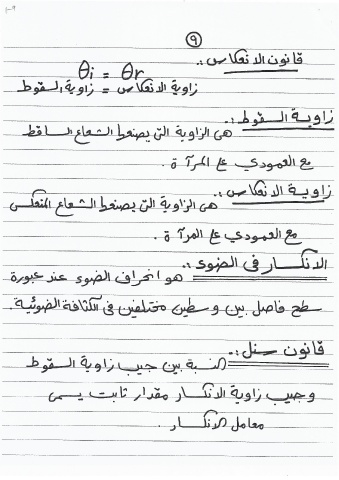 ٩
قانون الانعكاس :.
θi = θr
زاوية الانعكاس = زاوية السقوط
زاوية السقوط :.
هى الزاوية التى يصنعها الشعاع الساقط
مع العمودي على المرآة .
زاوية الانعكاس :.
هى الزاوية التى يصنعها الشعاع المنعكس
مع العمودي على المرآة .
الانكسار فى الضوء :.
هو انحراف الضوء عند عبورة
سطح فاصل بين وسطين مختلفين فى الكثافة الضوئية .
قانون سنل :.
النسبة بين جيب زاوية السقوط
وجيب زاوية الانكسار مقدار ثابت يسمى
معامل الانكسار .